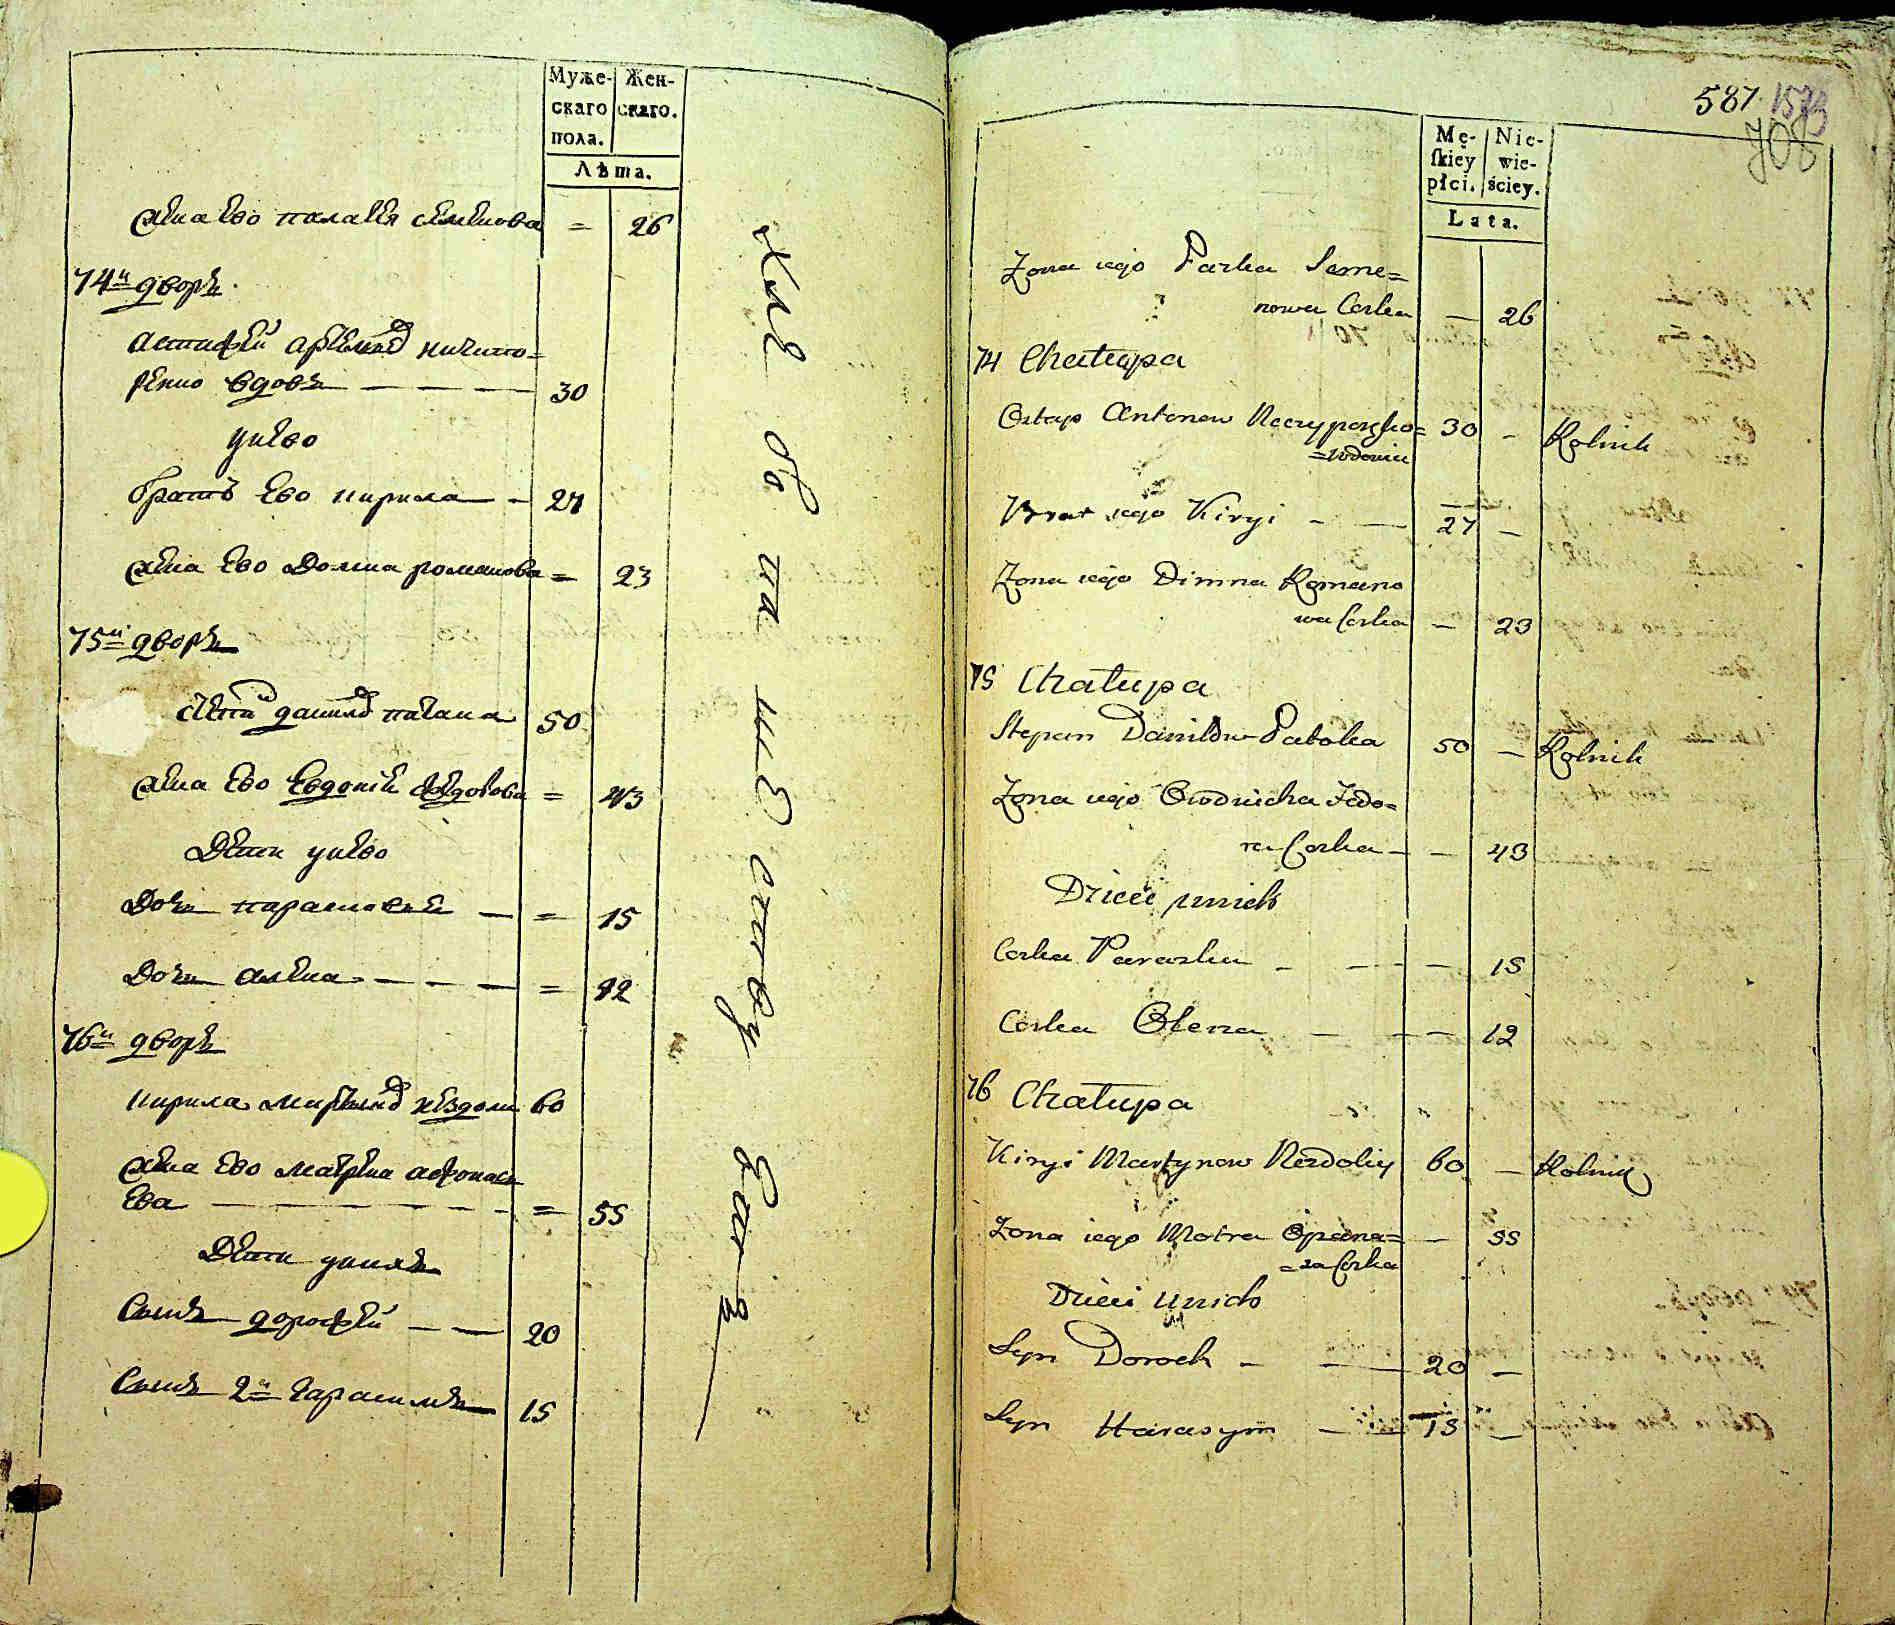 Муже-
скаго
пола.
Жен-
скаго.
Лѣта.
жена ево палагея семенова = 26
74й дворъ
Астафей ничипо=
ренко вдовъ — — — 30
у нево
братъ ево кирила — - 27
жена ево Домна романова = 23
75й дворъ
данилов 50
жена ево Евдокия федорова = 43
Дети у нево
Дочь парасковея — = 15
Дочь алена - — — — = 12
76й дворъ
кирила нездоли 60
жена ево матрена афонась
ева — — — — = 55
Дети у нихъ
Сынъ дорофей — — 20
Сынъ 2й гарасимъ 15
хле бо па ше ству
587
1573
708
Mę-
ſkiey
płci.
Nie-
wie-
ściey.
Lata.
Zona iego Parka Seme=
nowa Corka — 26
74 Chatupa
Ostap Antonow Neczyporenko= 30 - Rolnik
=wdowiec
Brat iego Kiryi - — 27 —
Zona iego Dimna Romano
wa Corka — 23
75 Chatupa
Stepan Daniłow Patoka 50 — Rolnik
Zona iego Owdoicha Fedo=
ra Corka — — 43
Dzieci unich
Corka Paraska - — — 15
Corka Olena — — — 12
76 Chatupa
Kiryi Martynow Nezdoliy 60 — Rolnik
Zona iego Motra Opana= — 55
=sa Corka
Dzieci unich
Syn Doroch - — 20 —
Syn Harasym — — 15 —